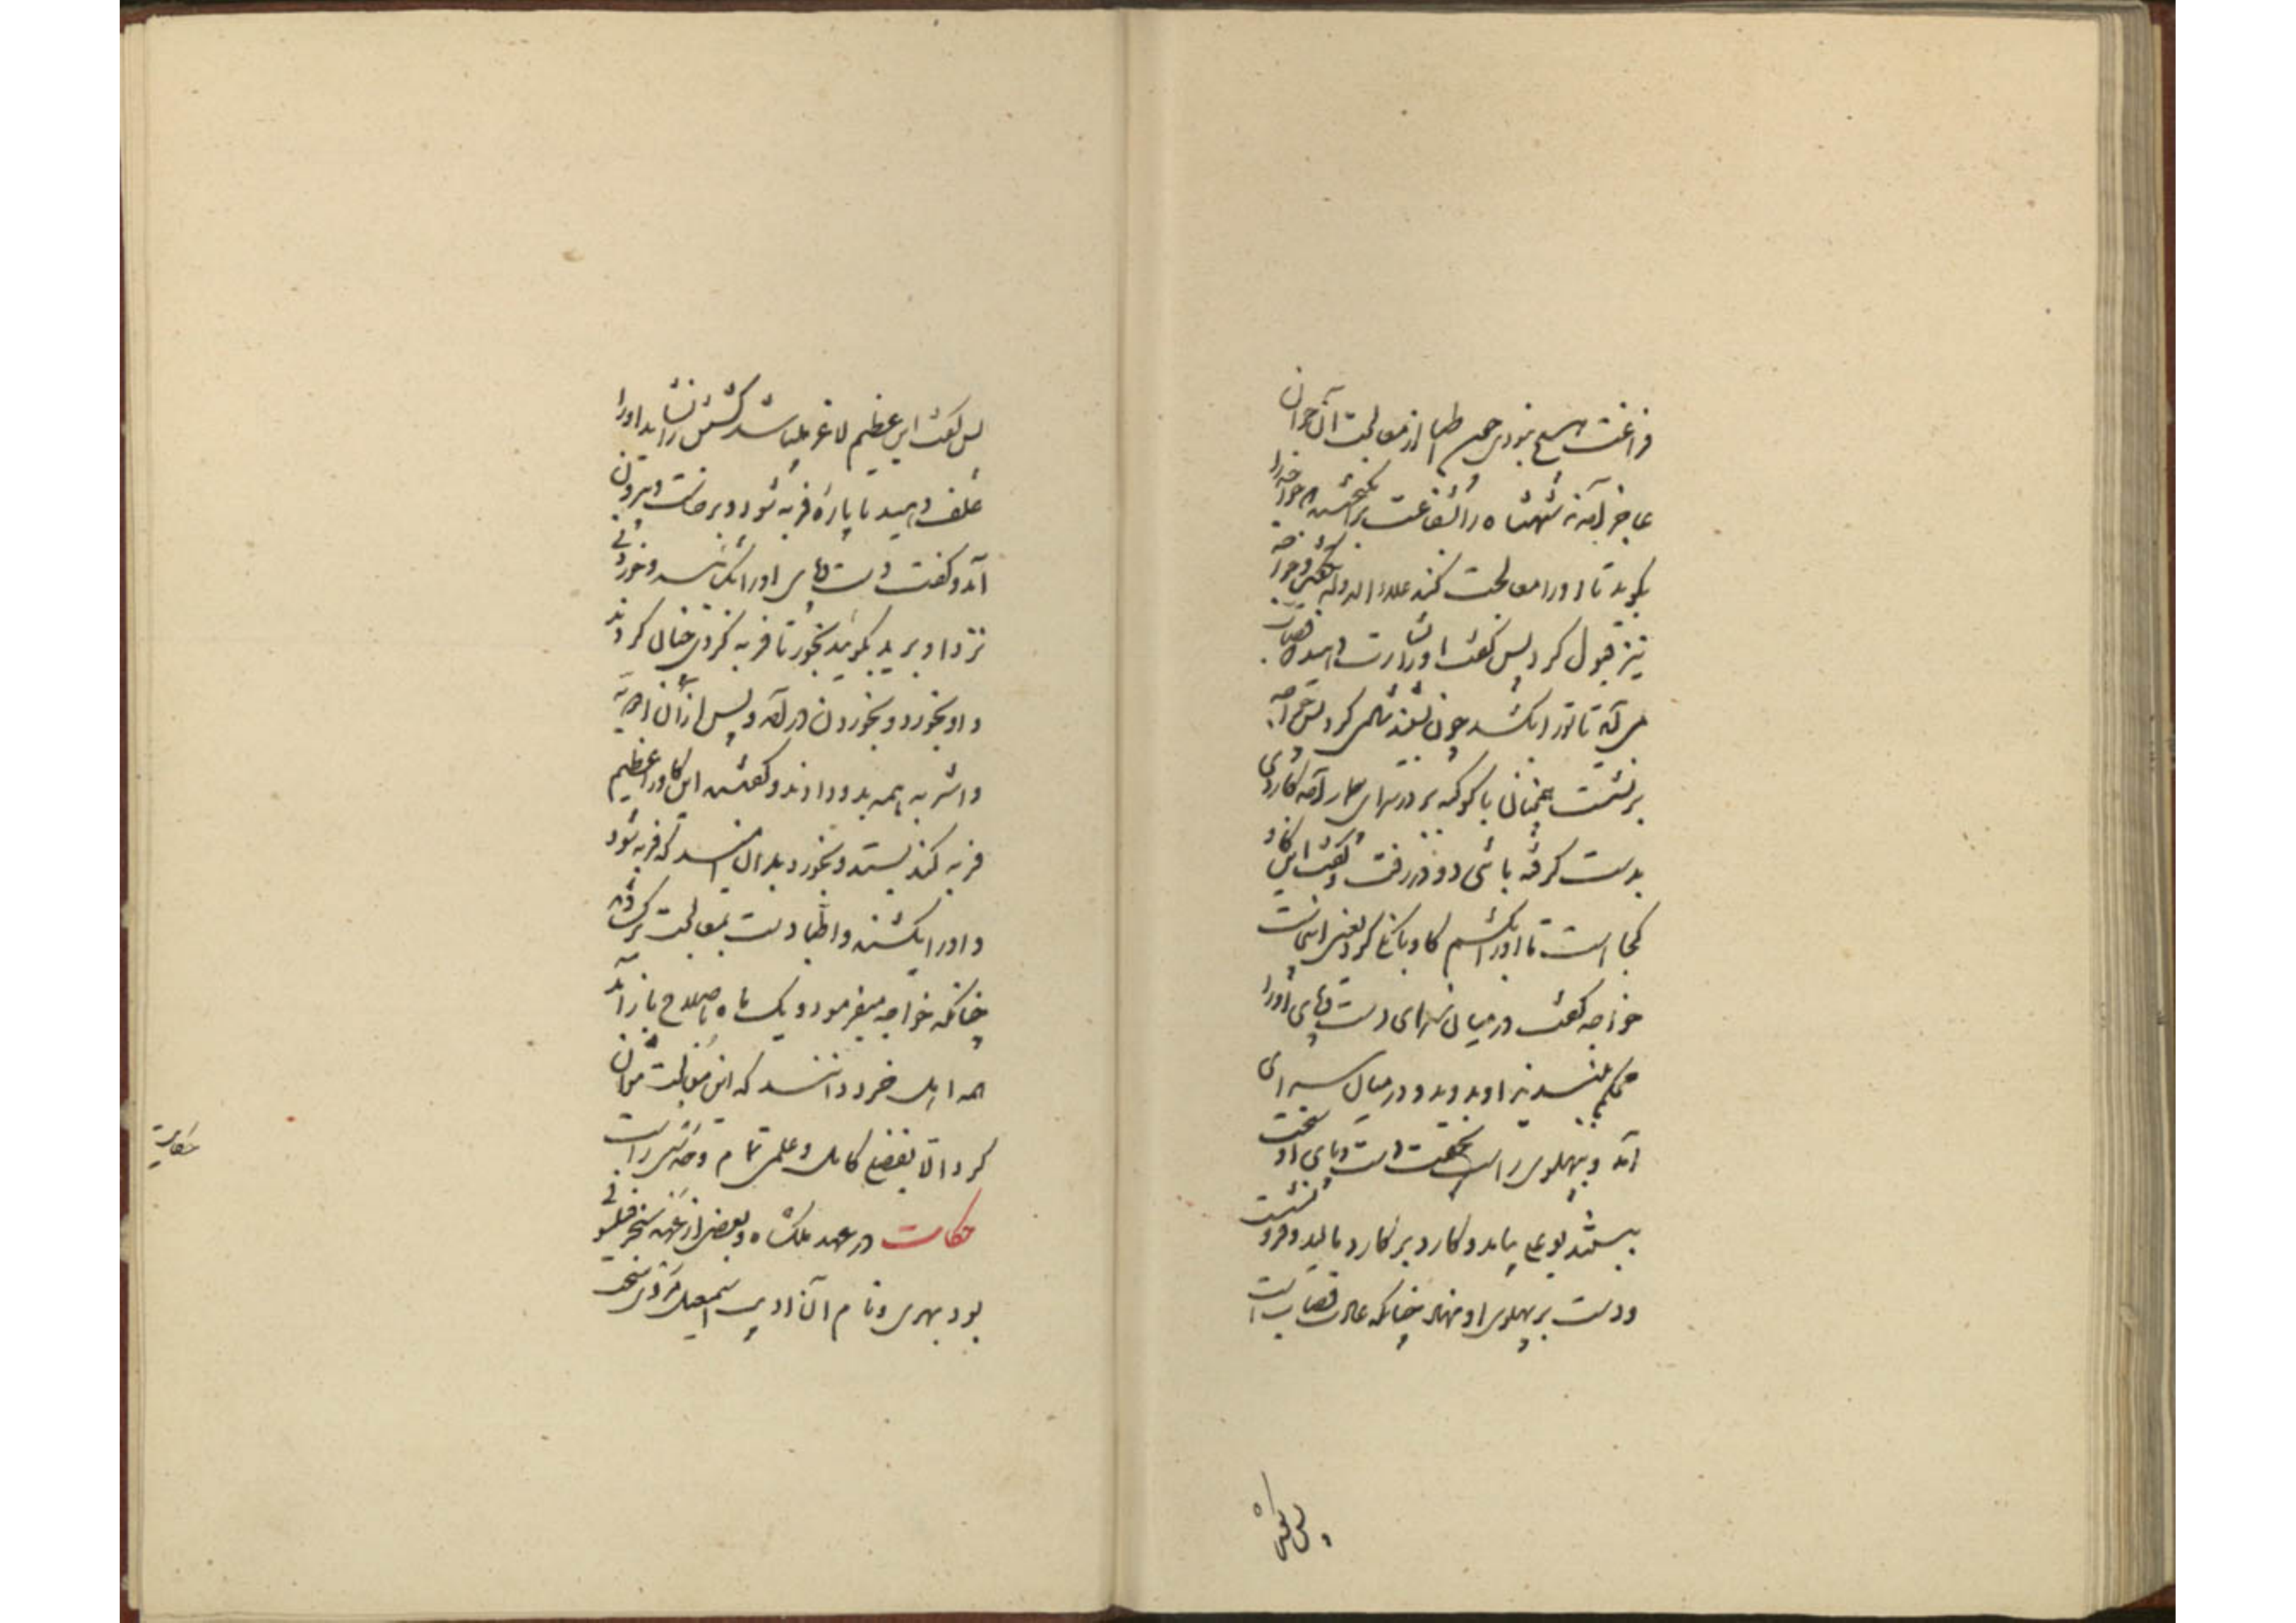 فراغت هیچ نبودی چون اطبا از معالجت آن جوان
عاجز آمدند شهنشاه را شفاعت برانگیختند خواجه را
بگوید تا او را معالجت کند علاء الدوله بگفت و خواجه
نیز قبول کرد پس گفت او را بشارت دهید که قصاب
می آید تا تو را بکشد چون بشنید شادی کرد پس خواجه
برنشست همچنان با کوکبه بر در سرای بیمار آمد کاردی
بدست گرفته با تنی دو در رفت و گفت این گاو
کجا است تا او را بکشم گاو بانگ کرد یعنی اینجاست
خواجه گفت در میان سرای دست و پای او را
محکم ببندید او بدوید و در میان سرای
آمد و بپهلوی راست بخفت دست و پای او سخت
ببستند بوعلی بیامد و کارد بر کارد مالید و فرو نشست
و دست بر پهلوی او نهاد چنانکه عادت قصاب است
پس گفت
پس گفت این عظیم لاغر است کشتن را نشاید او را
علف دهید تا پاره فربه شود و برخاست و بیرون
آمد و گفت دست و پای او را بگشائید و خوردنی
نزد او برید بگوئید بخور تا فربه گردی چنان کردند
و او بخورد و بخوردن در آمد و پس از آن ادویه
و اشربه همه بدو دادند و گفتند این گاو را عظیم
فربه کند بستدی و بخوردی بدان امید که فربه شود
و او را بکشند و اطبا دست بمعالجت برگشادند
چنانکه خواجه میفرمود و یک ماه باصلاح باز آمد
همه اهل خرد دانند که این معالجت نتوان
کرد الا بفضلی کامل و علمی تمام و حدسی راست
حکایت در عهد ملکشاه و بعضی از عهد سنجر فیلسوفی
بود بهری و نام آن ادیب اسمعیل مردی سخت
حکایت